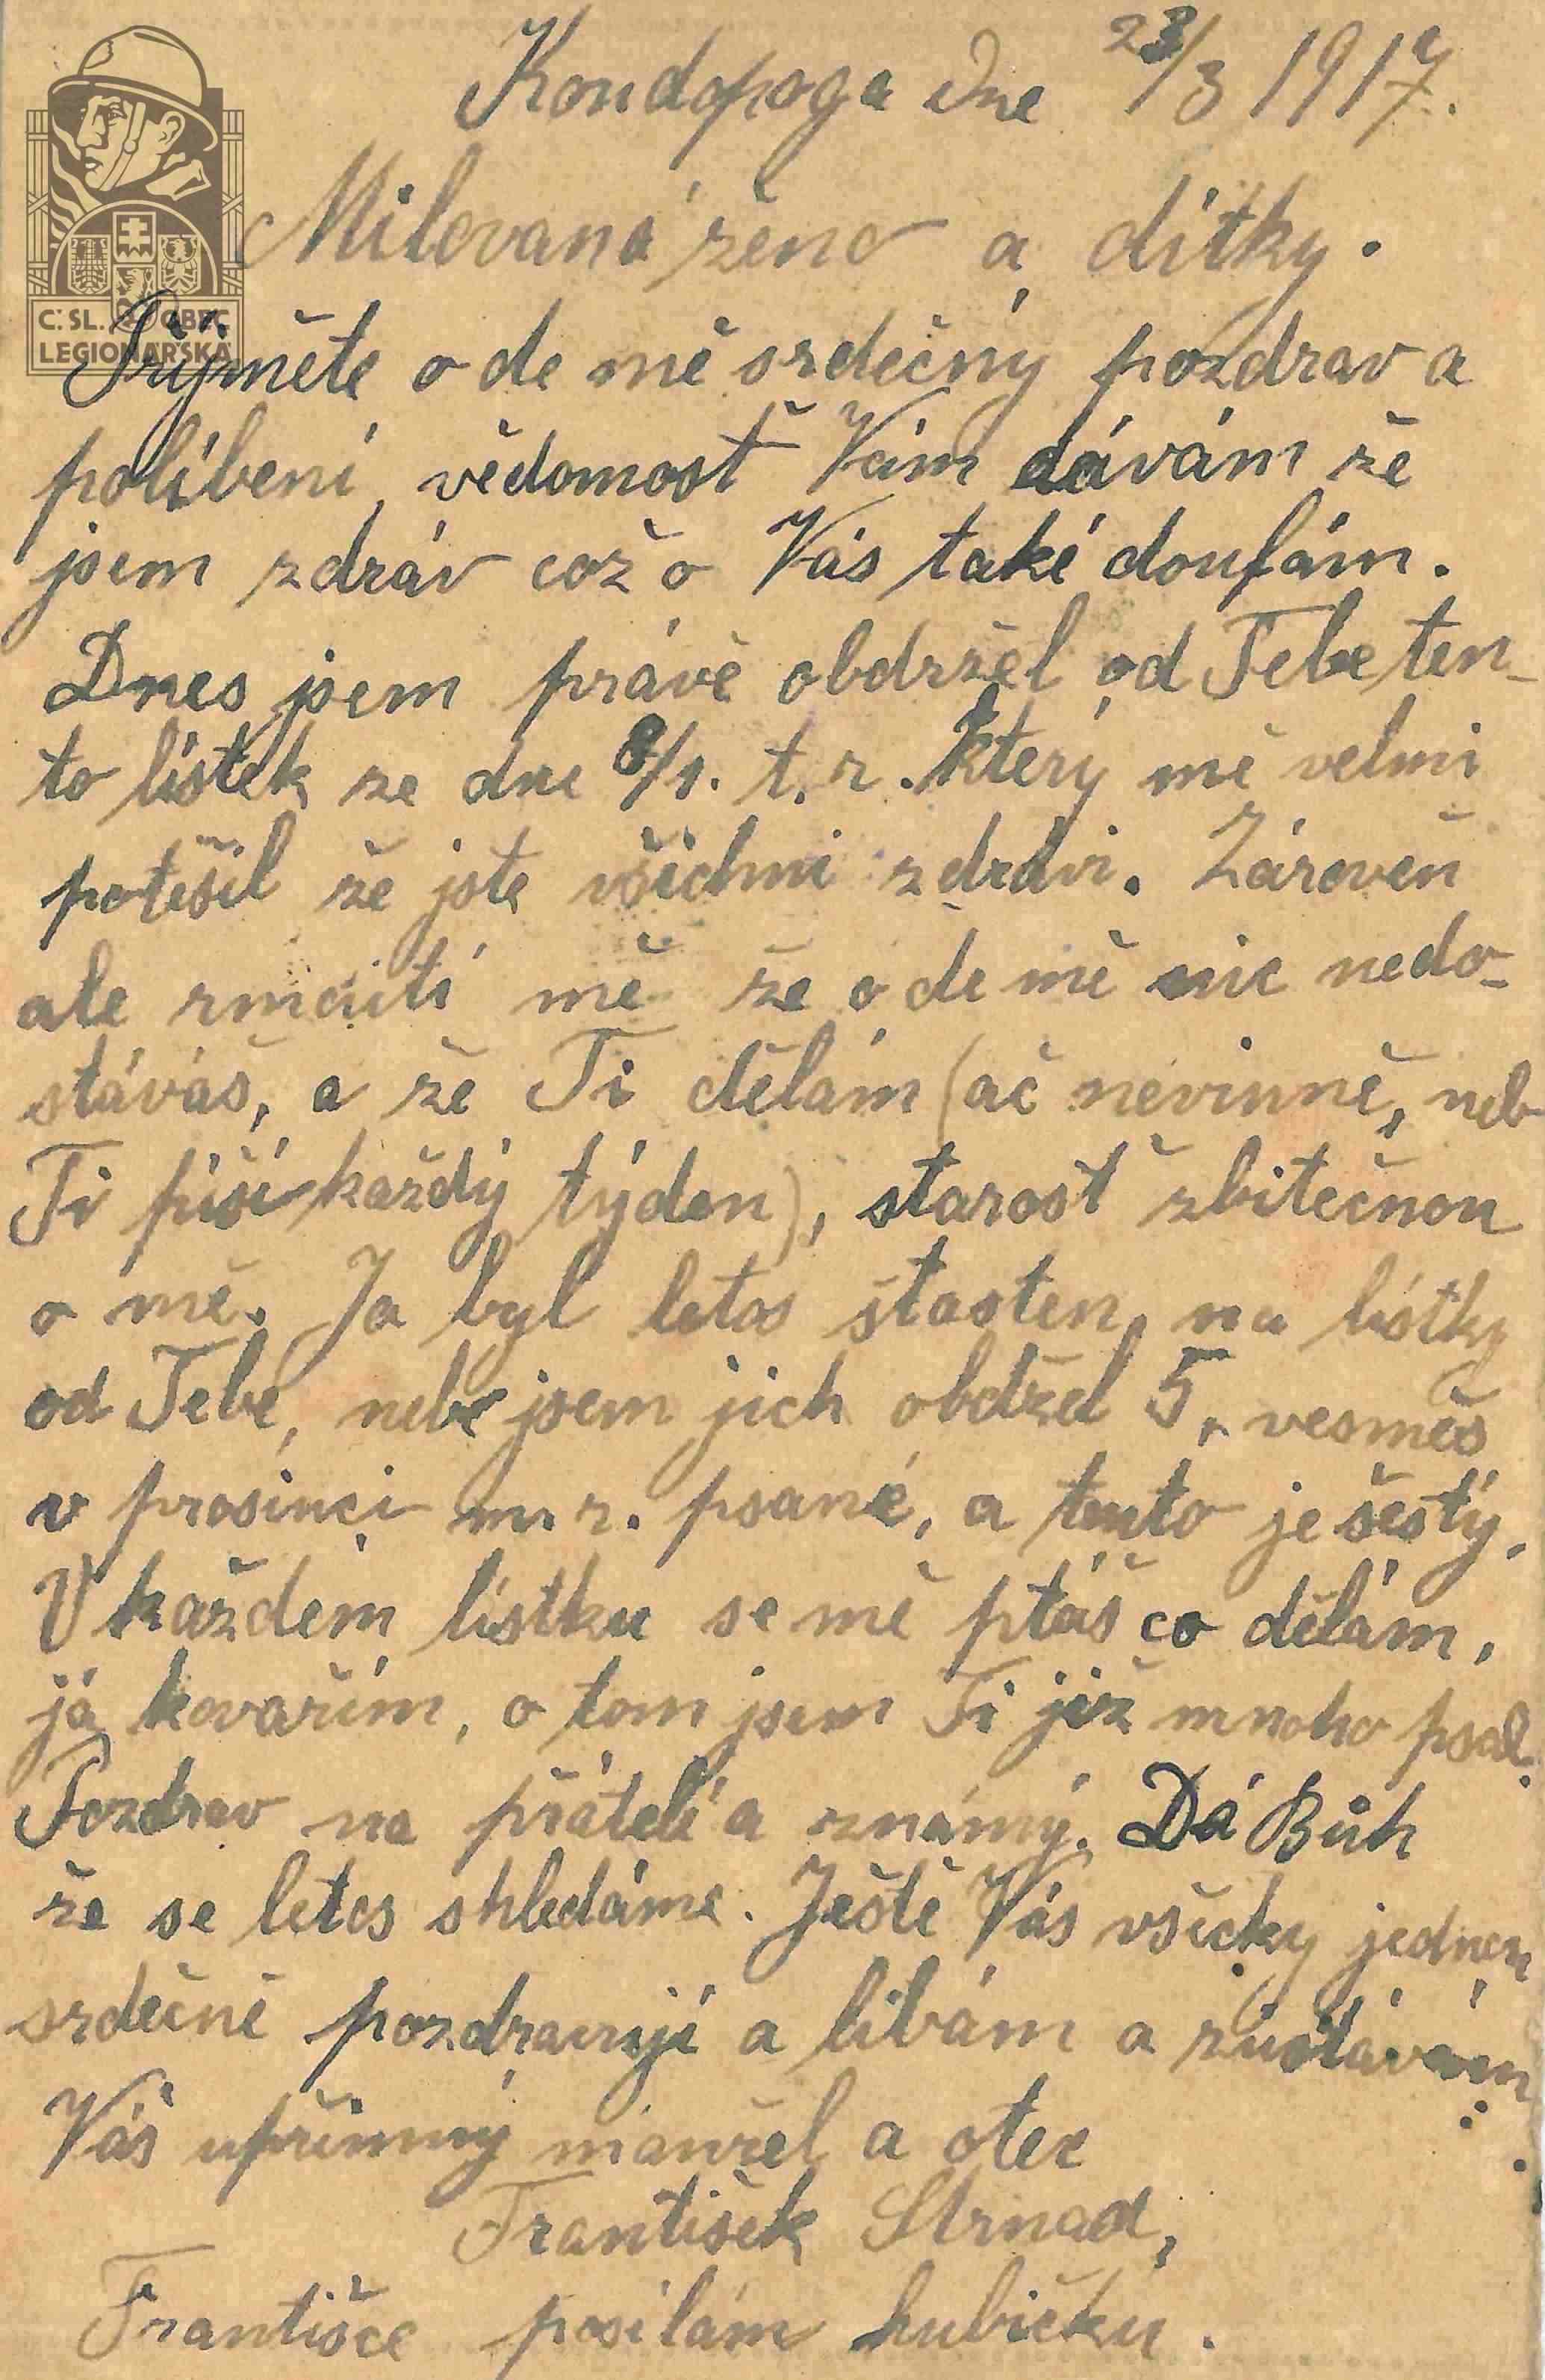 Kondopoga dne 23/3 1917.
Milovaná ženo a dítky.
Č:SL. OBEC
LEGIONÁŘSKÁ
Přijměte ode mě srdečný pozdrav a
políbení, vědomosť Vám dávám že
jsem zdráv což o Vás také doufám.
Dnes jsem právě obdržel od Tebe ten-
to lístek ze dne 8/1. t. r. který mě velmi
potěšil že jste všichni zdrávi. Zároveň
ale rmoutí mě že ode mě nic nedo-
stáváš, a že Ti dělám (ač nevinně, neb
Ti píši každý týden), starosť zbitečnou
o mě. Ja byl letos šťasten na lístky
od Tebe, nebo jsem jich obdžel 5, vesměs
v prosinci m. r. psané, a tento je šestý.
V každém lístku se mě ptáš co dělám,
já kovařím, o tom jsem Ti již mnoho psal.
Pozdrav na přátelé a známý. Dá Bůh
že se letos shledáme. Ještě Vás všicky jednou
srdečně pozdravuji a líbám a zůstávám
Váš upřímný manžel a otec
František Strnad,
Františce posílám hubičku.